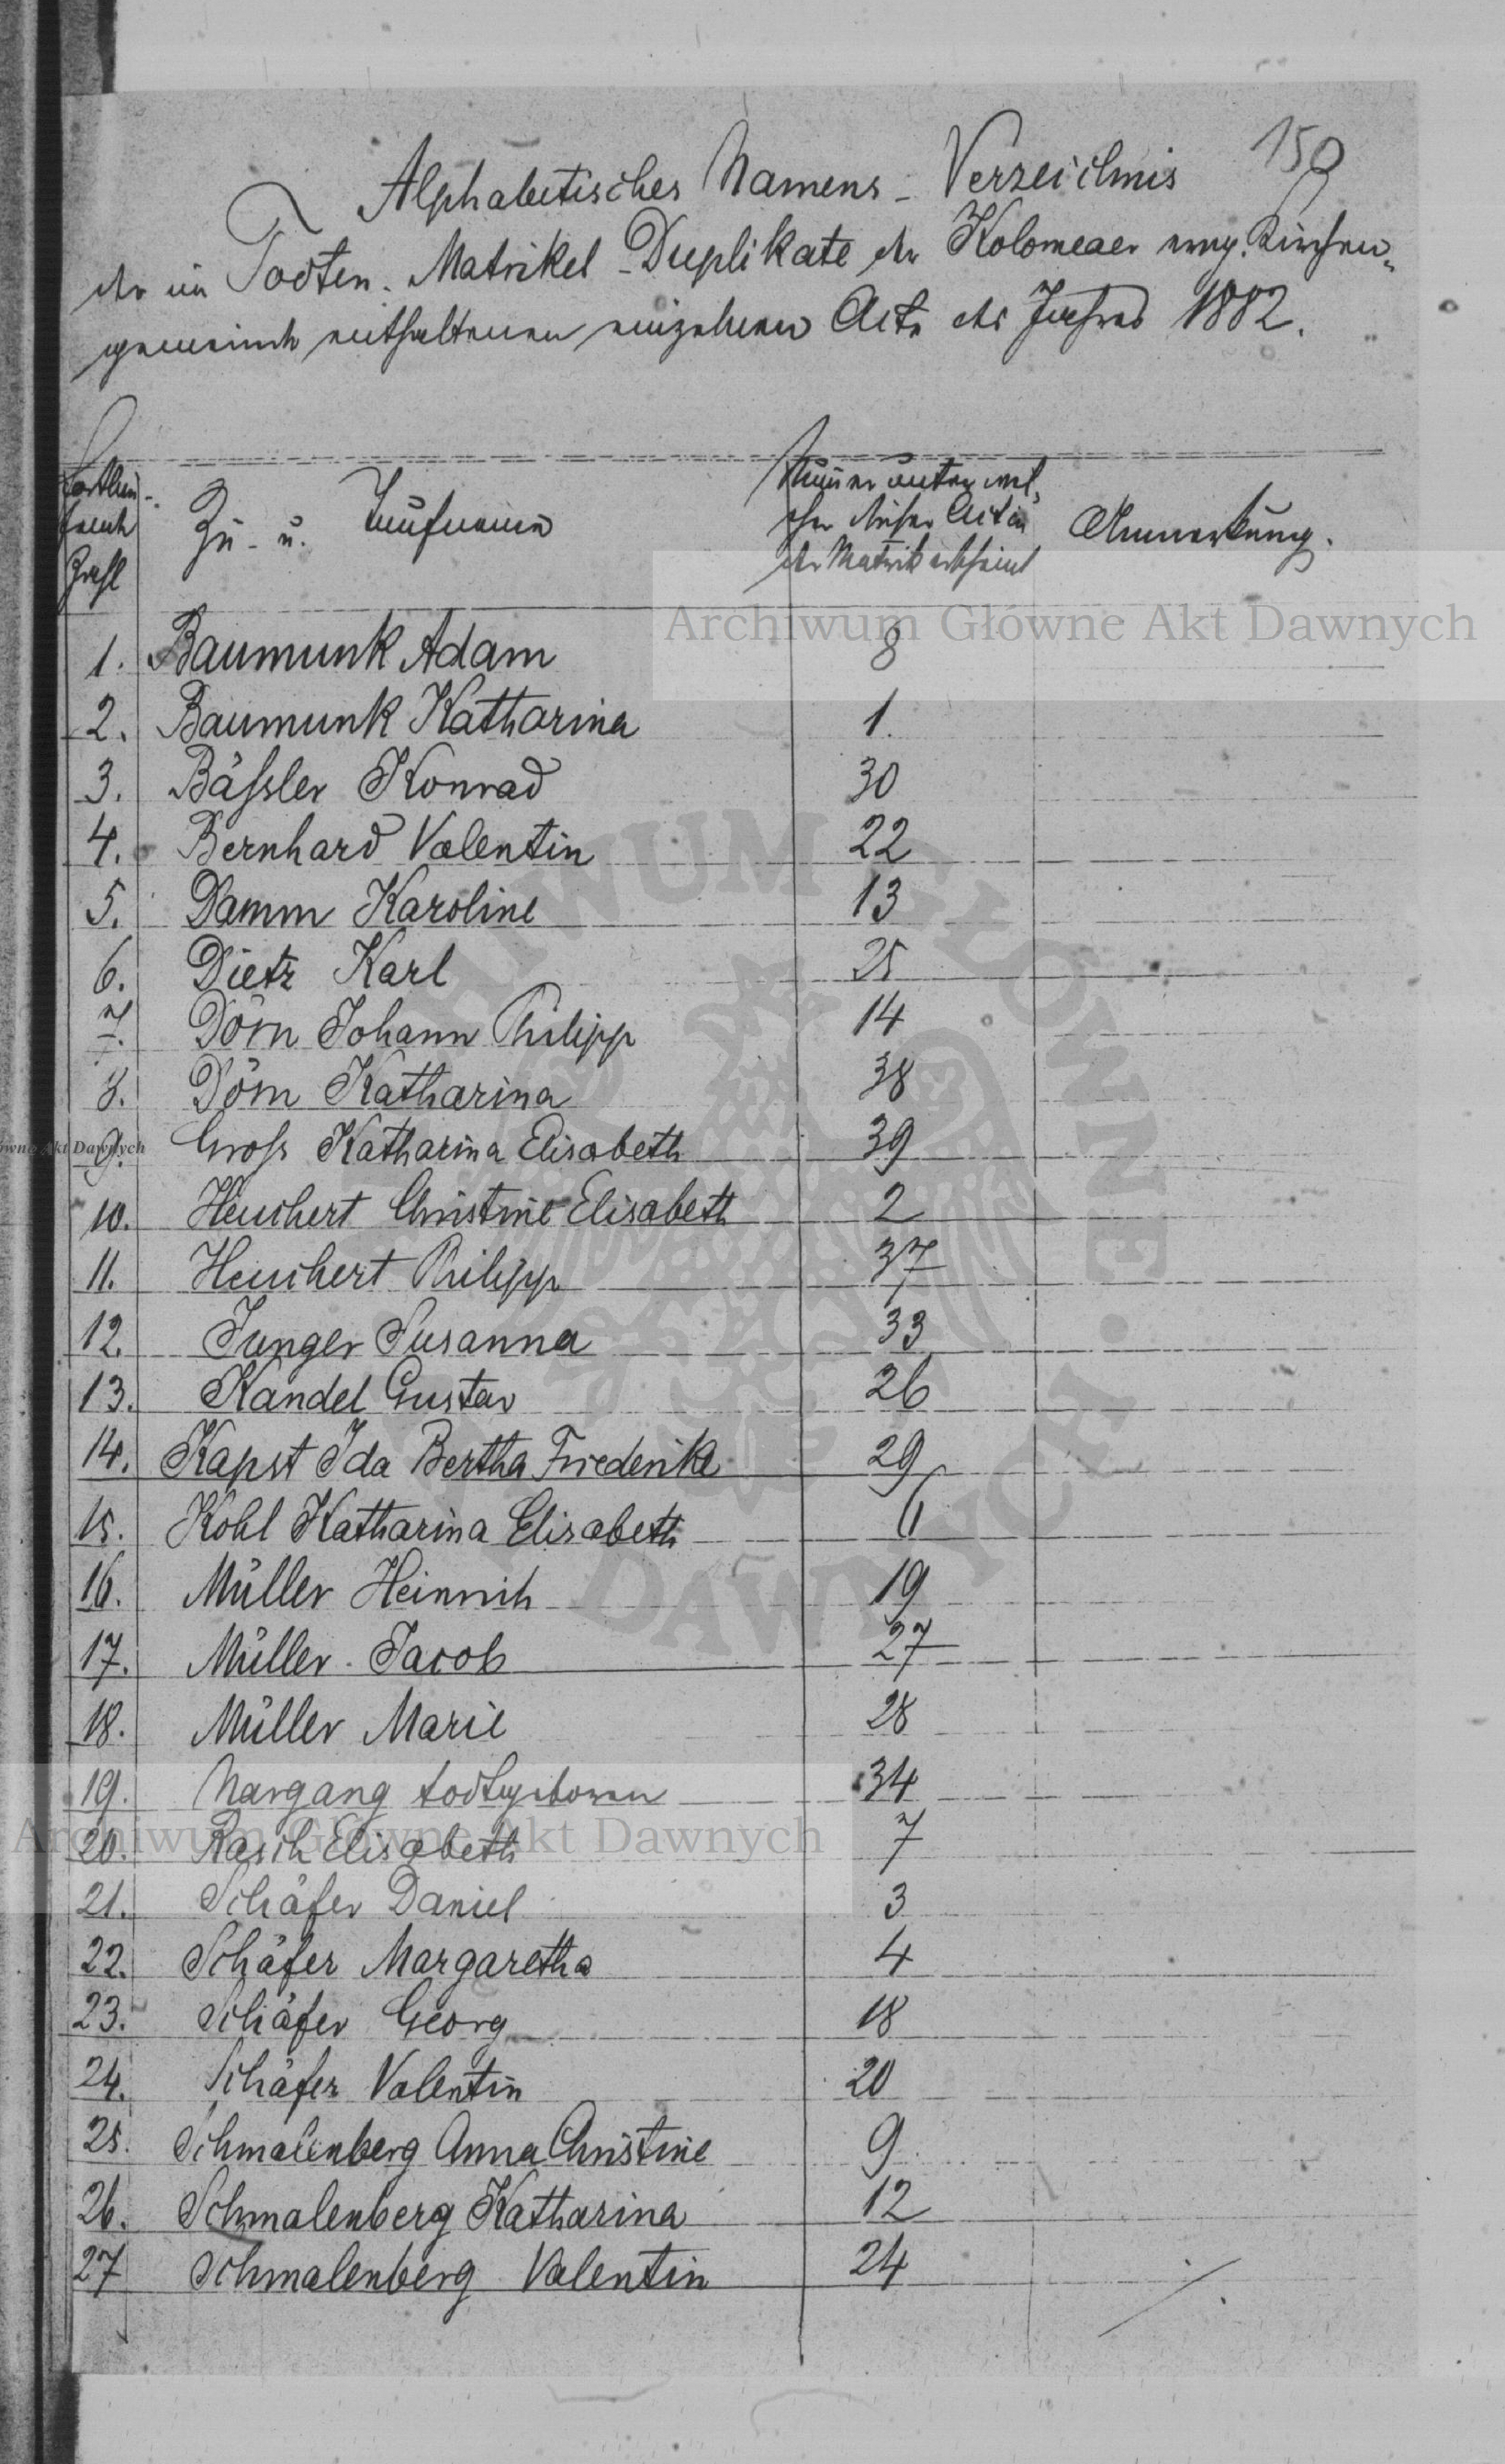 159
Alphabetisches Namens-Verzeichnis
der im Todten-Matrikel-Duplikate der Kolomeaer evang. Kirchen-
gemeinde enthaltenen einzelnen Acte des Jahres 1882.
Fortlau-
fende
Zahl
Zu- u. Taufname
Nummer unter wel-
cher dieser Act in
der Matrik erscheint
Anmerkung.
1. Baumunk Adam 8
2. Baumunk Katharina 1.
3. Bäßler Konrad 30
4. Bernhard Valentin 22
5. Damm Karoline 13
6. Dietz Karl 25
7. Dörn Johann Philipp 14
8. Dörn Katharina 38
9. Groß Katharina Elisabeth 39
10. Heuchert Christine Elisabeth 2
11. Heuchert Philipp 37
12. Junger Susanna 33
13. Kandel Gustav 26
14. Kapst Ida Bertha Friederike 29
15. Kohl Katharina Elisabeth 6
16. Müller Heinrich 19
17. Müller Jacob 27
18. Müller Marie 28
19. Nargang todtgeboren 34
20. Rasch Elisabeth 7
21. Schäfer Daniel 3
22. Schäfer Margaretha 4
23. Schäfer Georg 18
24. Schäfer Valentin 20
25. Schmalenberg Anna Christine 9
26. Schmalenberg Katharina 12
27 Schmalenberg Valentin 24
Archiwum Główne Akt Dawnych
Archiwum Główne Akt Dawnych